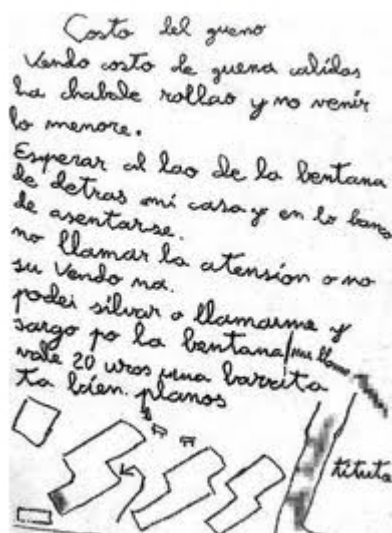 Costo del gueno
Vendo costo de guena calidas
ha chabale rollao y no venir
lo menore.
Esperar al lao de la bentana
de detras mi casa y en lo banco
de asentarse.
no llamar la atension o no
su vendo na.
podei silvar o llamarme y
sargo po la bentana / mu llamo
vale 20 uros una barrita
ta bien. planos
tituta